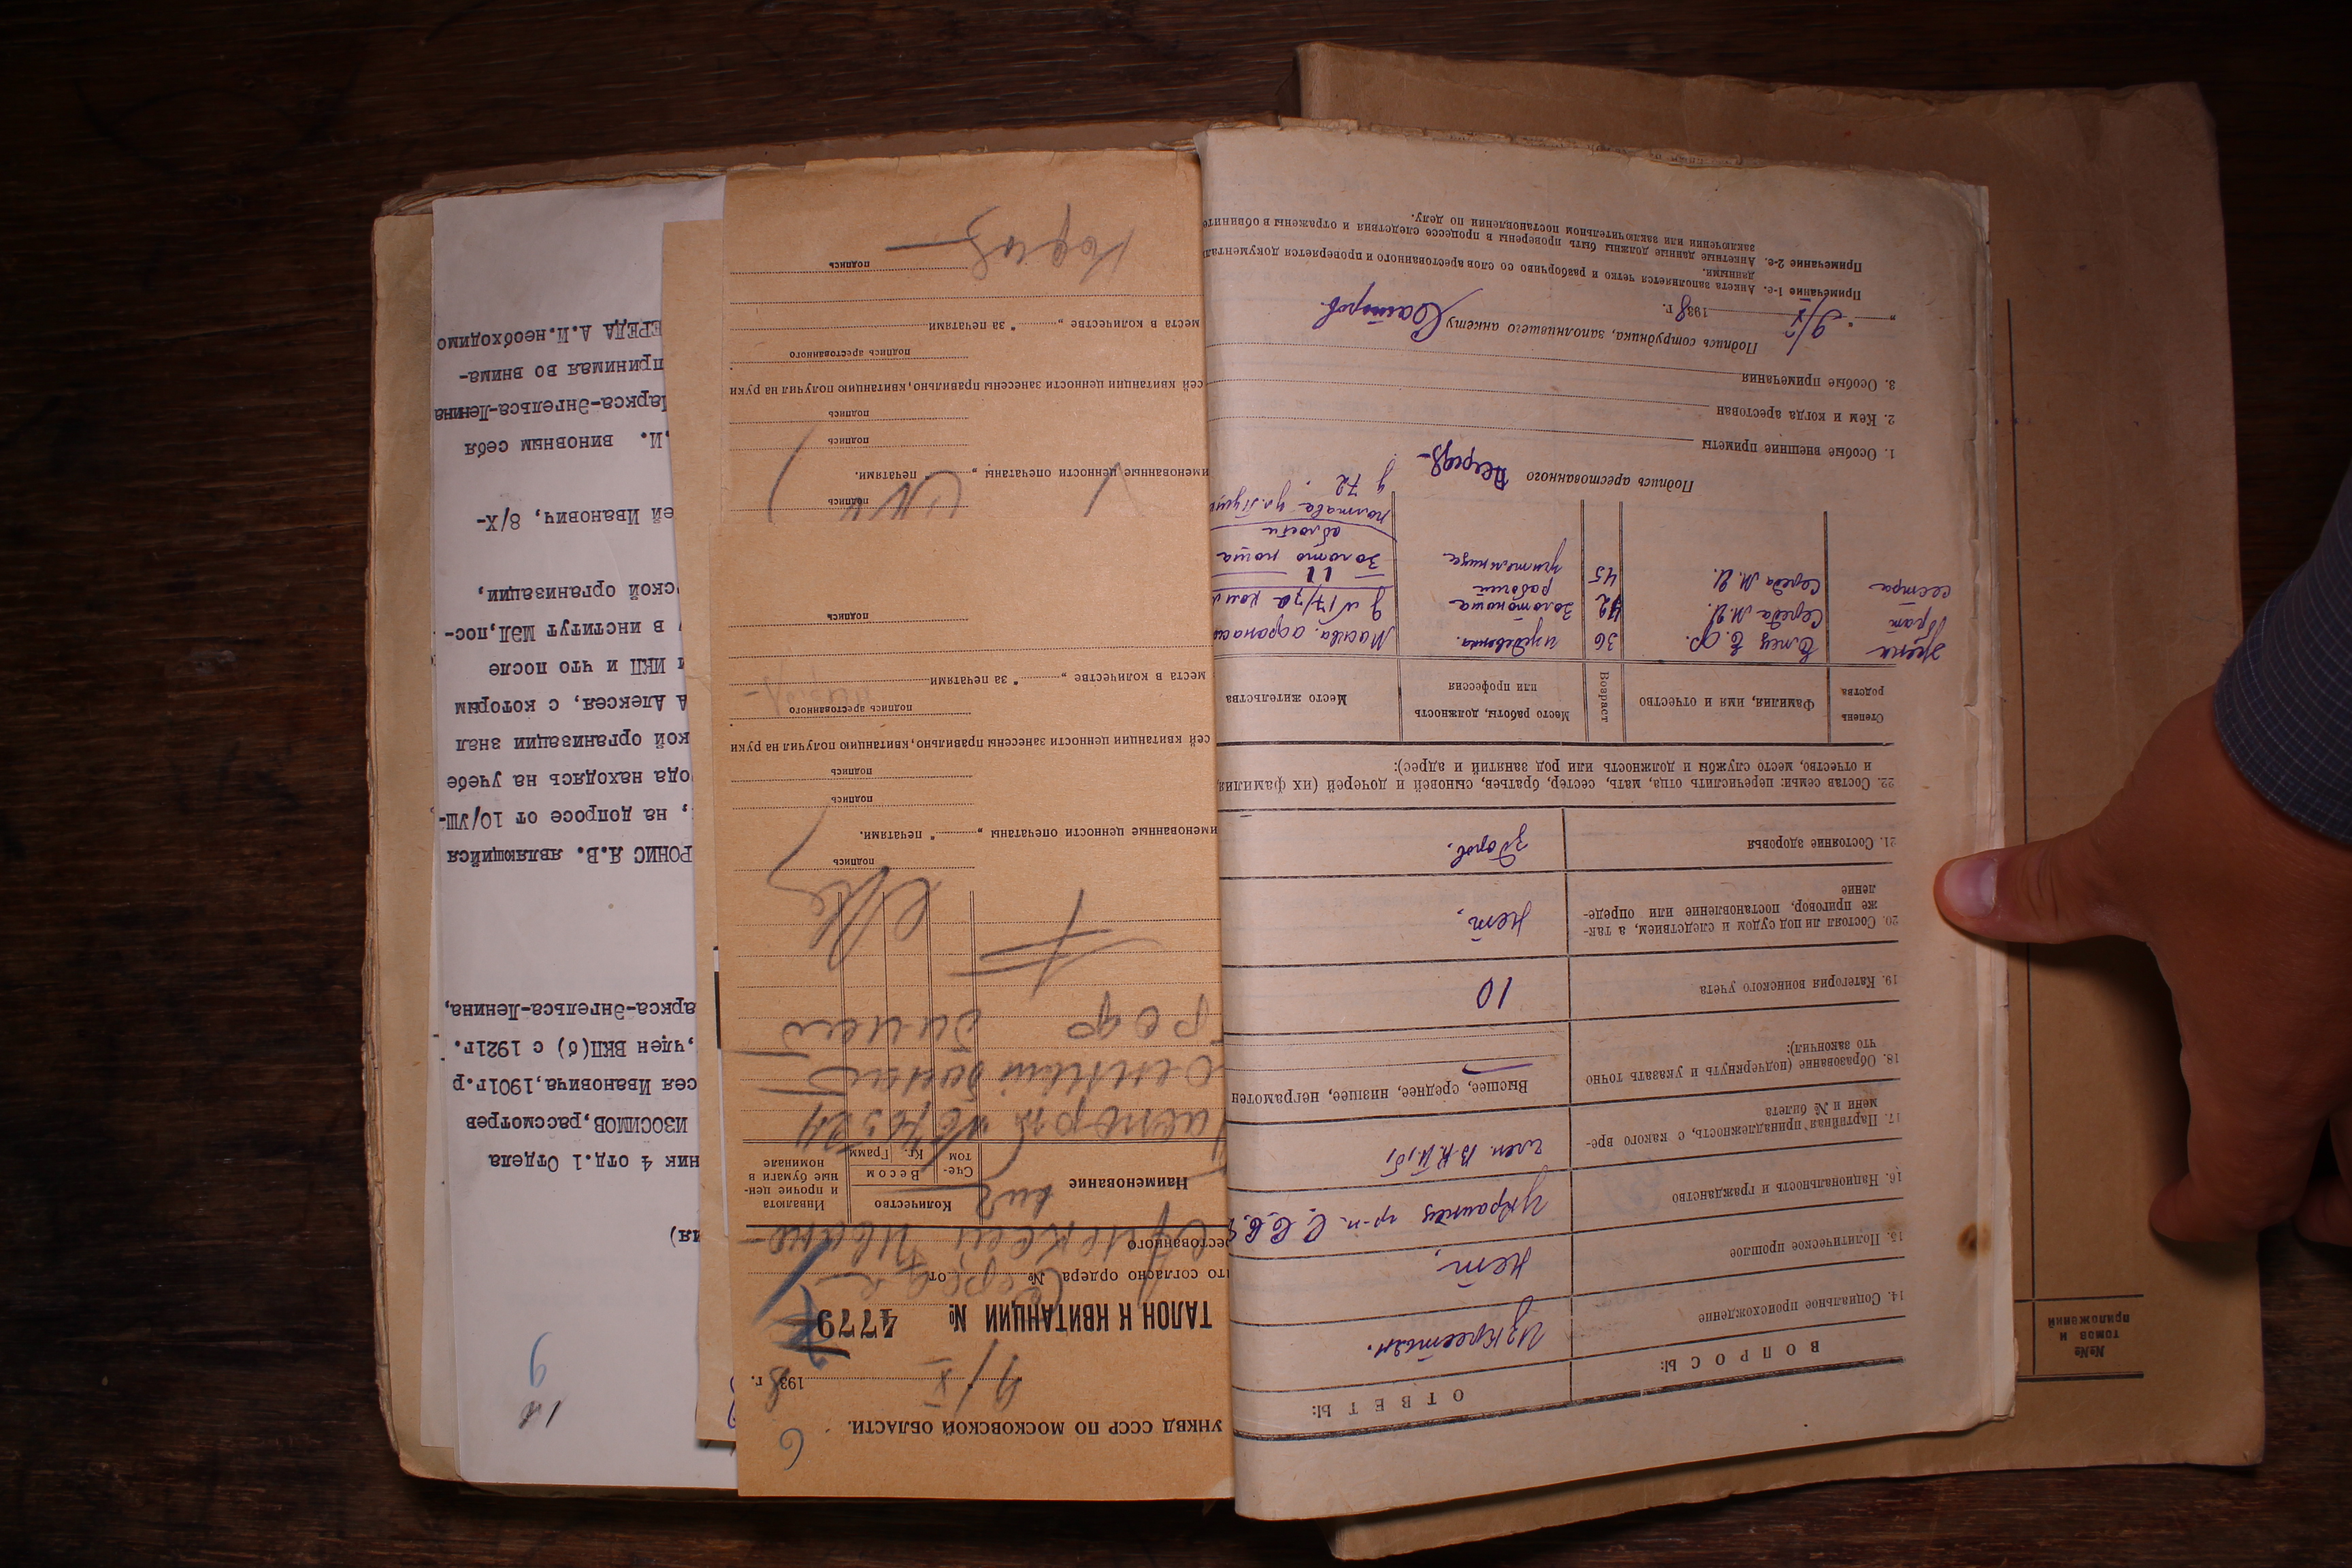 О Т В Е Т Ы:
В О П Р О С Ы:
14. Социальное происхождение
из крестьян.
15. Политическое прошлое
нет,
16. Национальность и гражданство
Украинец гр-н. С.С.С.
17. Партийная принадлежность, с какого вре-
мени и № билета
член В.К.П.б,
18. Образование (подчеркнуть и указать точно
что закончил):
Высшее, среднее, низшее, неграмотен
19. Категория воинского учета
10
20. Состоял ли под судом и следствием, а так-
же приговор, постановление или опреде-
ление
нет,
21. Состояние здоровья
здоров.
22. Состав семьи: перечислить отца, мать, сестер, братьев, сыновей и дочерей (их фамилия,
и отчество, место службы и должность или род занятий и адрес):
Степень
родства
Фамилия, имя и отчество
Возраст
Место работы, должность
или профессия
Место жительства
жена
36
иждевенка.
Москва.
брат
Середа М. И.
42
Золотоноша
рабочий
золото ноша
сестра
Середа М. И.
45
учительница
области
Полтава ул.
72
Подпись арестованного
Середа
1. Особые внешние приметы
2. Кем и когда арестован
3. Особые примечания
Подпись сотрудника, заполнившего анкету
„ 9/X “ 1938 г.
Примечание 1-е. Анкета заполняется четко и разборчиво со слов арестованного и проверяется документал
данными.
Примечание 2-е. Анкетные данные должны быть проверены в процессе следствия и отражены в обвините
заключении или заключительном постановлении по делу.
УНКВД СССР ПО МОСКОВСКОЙ ОБЛАСТИ.
6
9/X 1938 г.
ТАЛОН К КВИТАНЦИИ № 4779
7
что согласно ордера № от
Середа
рестованного
Алексей Ивано-
вич
Наименование
Количество
Сче-
том
Весом
Кг.
Грамм
Инвалюта
и прочие цен-
ные бумаги в
номинале
Паспорт
билет
подпись
именованные ценности опечатаны „ “ печатями.
подпись
подпись
сей квитанции ценности занесены правильно, квитанцию получил на руки
подпись арестованного
места в количестве „ “ за печатями
подпись
подпись
именованные ценности опечатаны „ “ печатями.
подпись
подпись
сей квитанции ценности занесены правильно, квитанцию получил на руки
подпись арестованного
места в количестве „ “ за печатями
подпись
9
ия)
ник 4 отд.1 Отдела
ИЗОСИМОВ,рассмотрев
сея Ивановича,1901г.р
,член ВКП(б) с 1921г.
аркса-Энгельса-Ленина,
РОНИС Я.В. являющийся
, на допросе от 10/УШ-
ода находясь на учебе
кой организации знал
А Алексея, с которым
и ИКП и что и после
в институт МЭЛ,пос-
ской организации,
ей Иванович, 8/X-
.И. виновным себя
Маркса-Энгельса-Ленина
принимая во внима-
ЕРЕДА А.И.необходимо
№№
томов и
приложений